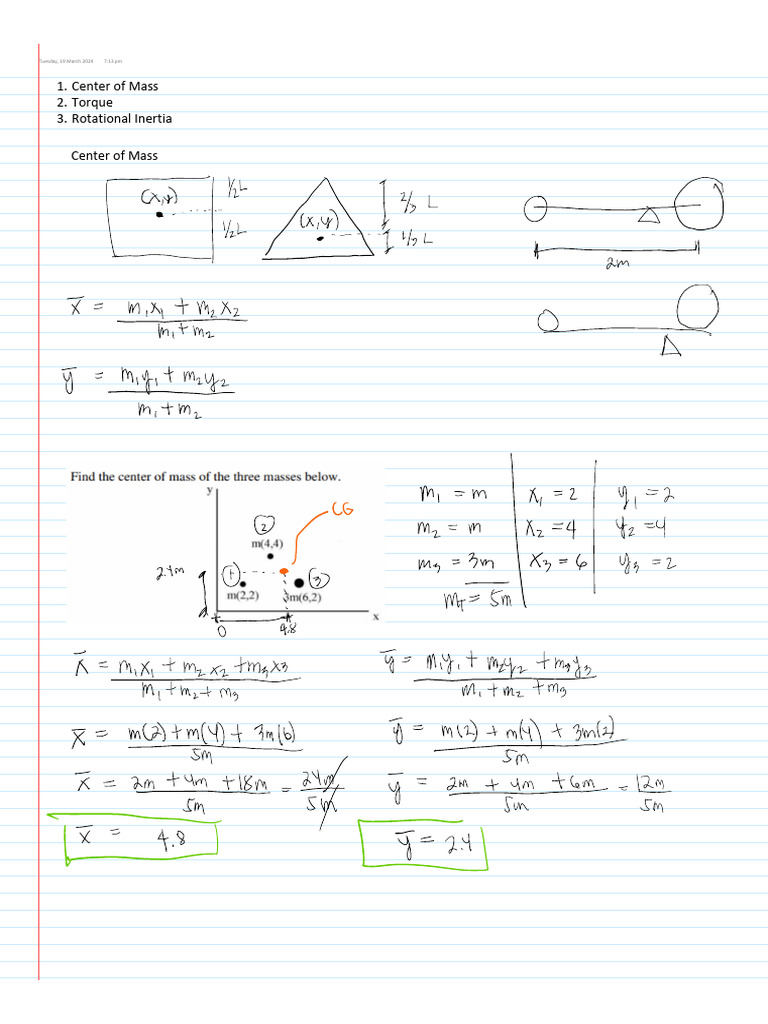 Tuesday, 19 March 2024 7:13 pm
1. Center of Mass
2. Torque
3. Rotational Inertia
Center of Mass
(x,y)
½L
½L
(x,y)
2/3 L
1/3 L
2m
x̄ = m₁x₁ + m₂x₂
m₁+m₂
ȳ = m₁y₁ + m₂y₂
m₁+m₂
Find the center of mass of the three masses below.
y
CG
2
m(4,4)
2.4m
1
3
m(2,2)
3m(6,2)
x
0
4.8
m₁ = m x₁ = 2 y₁ = 2
m₂ = m x₂ = 4 y₂ = 4
m₃ = 3m x₃ = 6 y₃ = 2
m_T = 5m
x̄ = m₁x₁ + m₂x₂ + m₃x₃
m₁+m₂+m₃
ȳ = m₁y₁ + m₂y₂ + m₃y₃
m₁+m₂+m₃
x̄ = m(2)+m(4)+3m(6)
5m
ȳ = m(2)+m(4)+3m(2)
5m
x̄ = 2m+4m+18m = 24m
5m 5m
ȳ = 2m+4m+6m = 12m
5m 5m
x̄ = 4.8
ȳ = 2.4